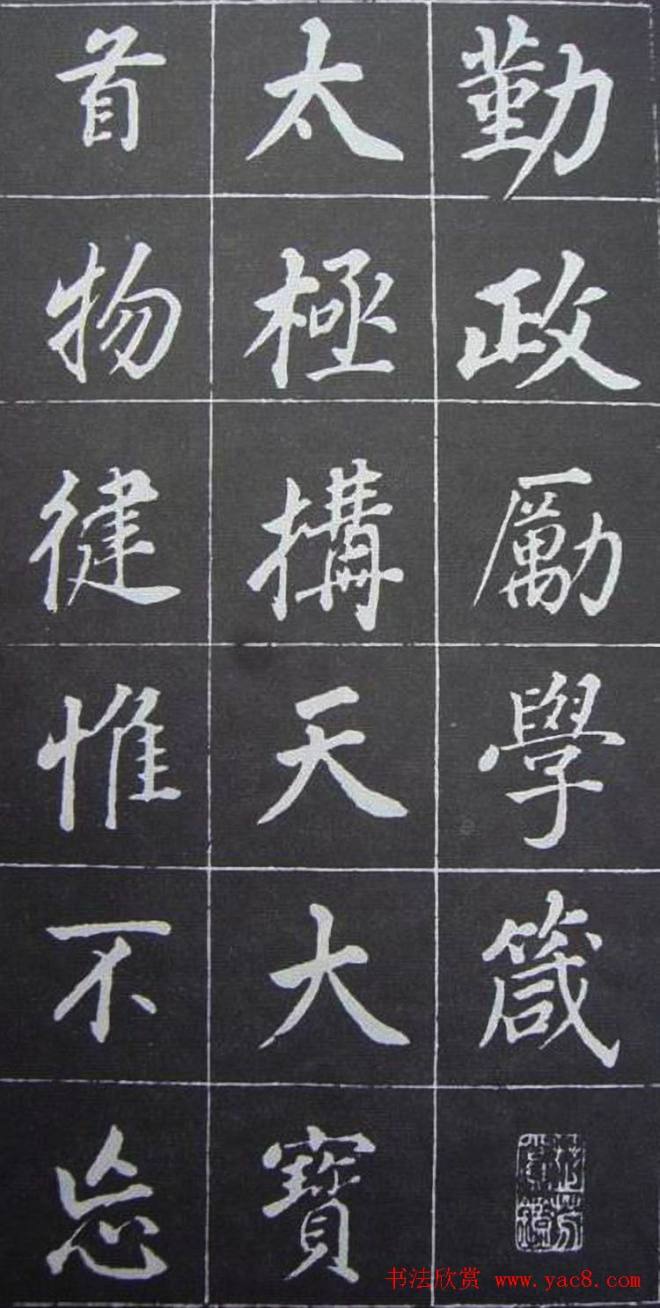 勤政勵學箴
太極搆天大寶
首物徤惟不忘
书法欣赏 www.yac8.com